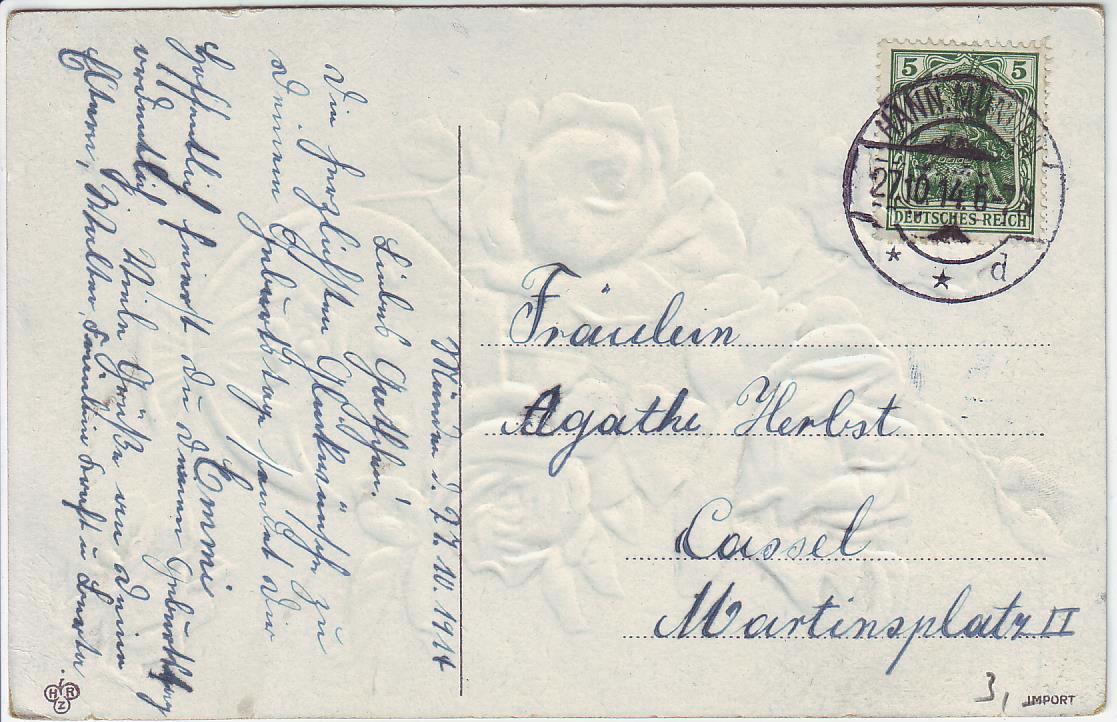 Münden d. 27. 10. 1914
Liebes Gathchen!
Die herzlichsten Glückwünsche zu
Deinem Geburtstage sendet Dir
Emmi
Hoffentlich feierst du deinen Geburtstag
ordentlich Viele Grüße an deine
Eltern, Walter,
5 5
DEUTSCHES REICH
HANN. MÜN
27.10.14.6-7
d
Fräulein
Agathe Herbst
Cassel
Martinsplatz II
3,
IMPORT
H R Z